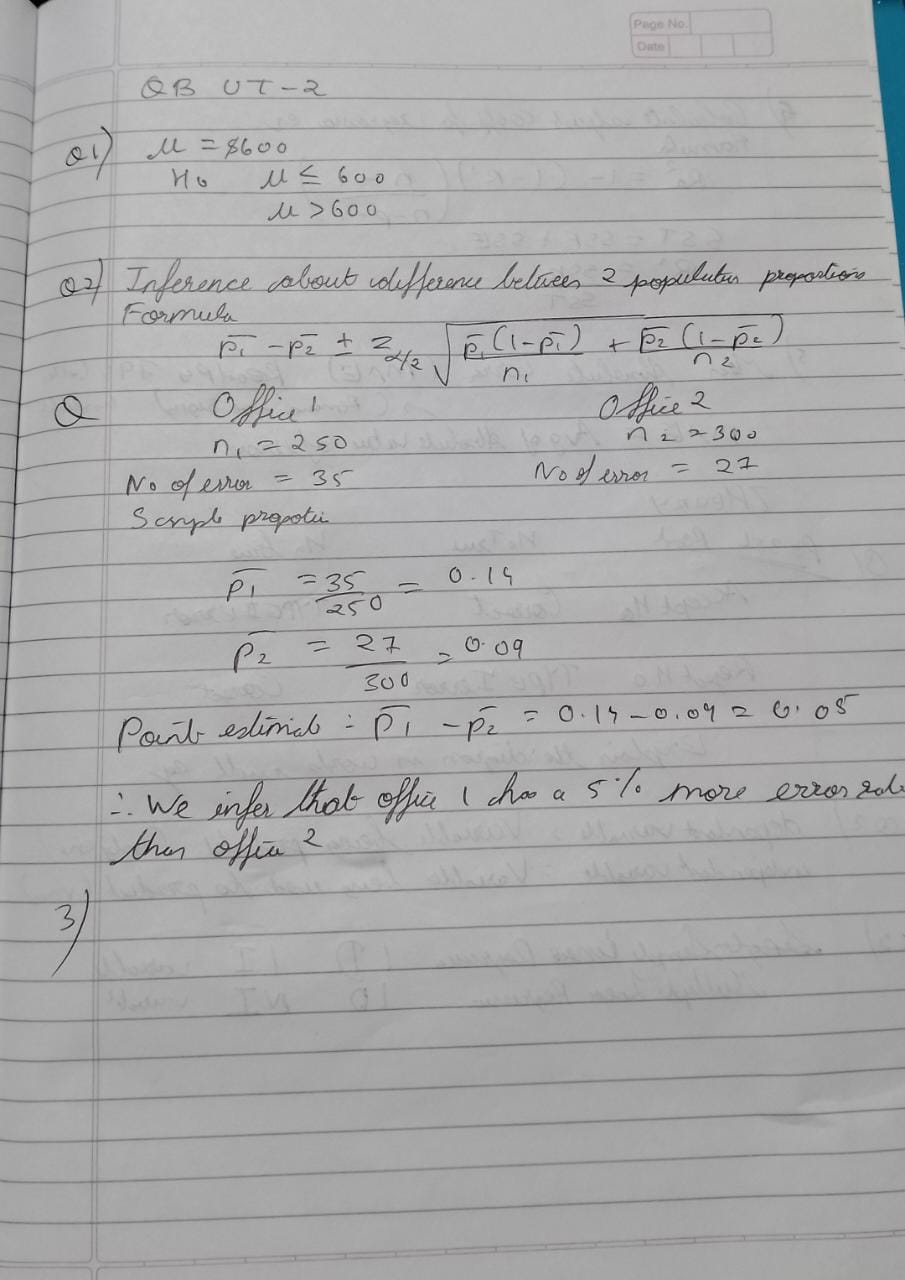 Page No.
Date
QB UT-2
Q1) μ = 8600
H0 μ ≤ 600
μ > 600
Q2) Inference about difference between 2 population proportions
Formula
p̄1 - p̄2 ± z α/2 √ p̄1(1-p̄1) / n1 + p̄2(1-p̄2) / n2
Q Office 1 Office 2
n1 = 250 n2 = 300
No of error = 35 No of error = 27
Sample
p̄1 = 35/250 = 0.14
p̄2 = 27/300 = 0.09
Point : p̄1 - p̄2 = 0.14 - 0.09 = 0.05
∴ We infer that office 1 has a 5% more error rate
than office 2
3)